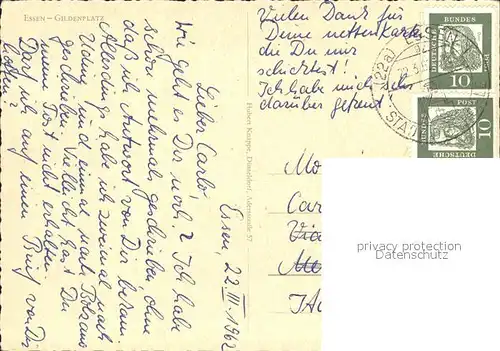 ESSEN – GILDENPLATZ
Essen, 22.III.1962
Lieber Carlo!
Wie geht es Dir noch? Ich habe
schon mehrmals geschrieben ohne
daß ich Antwort von Dir bekam.
Allerdings habe ich zweimal nach
Udine und einmal nach Bolzano
geschrieben. Vielleicht hast Du
meine Post nicht erhalten.
Darf ich auf einen Brief von Dir
hoffen?
Vielen Dank für
Deine netten Karten
die Du mir
schicktest!
Ich habe mich sehr
darüber gefreut.
Hubert Knippe, Düsseldorf, Adersstraße 57
Car
Via
DEUTSCHE
BUNDES
POST
10
DEUTSCHE
BUNDES
POST
10
(22a)
STAD
privacy protection
Datenschutz